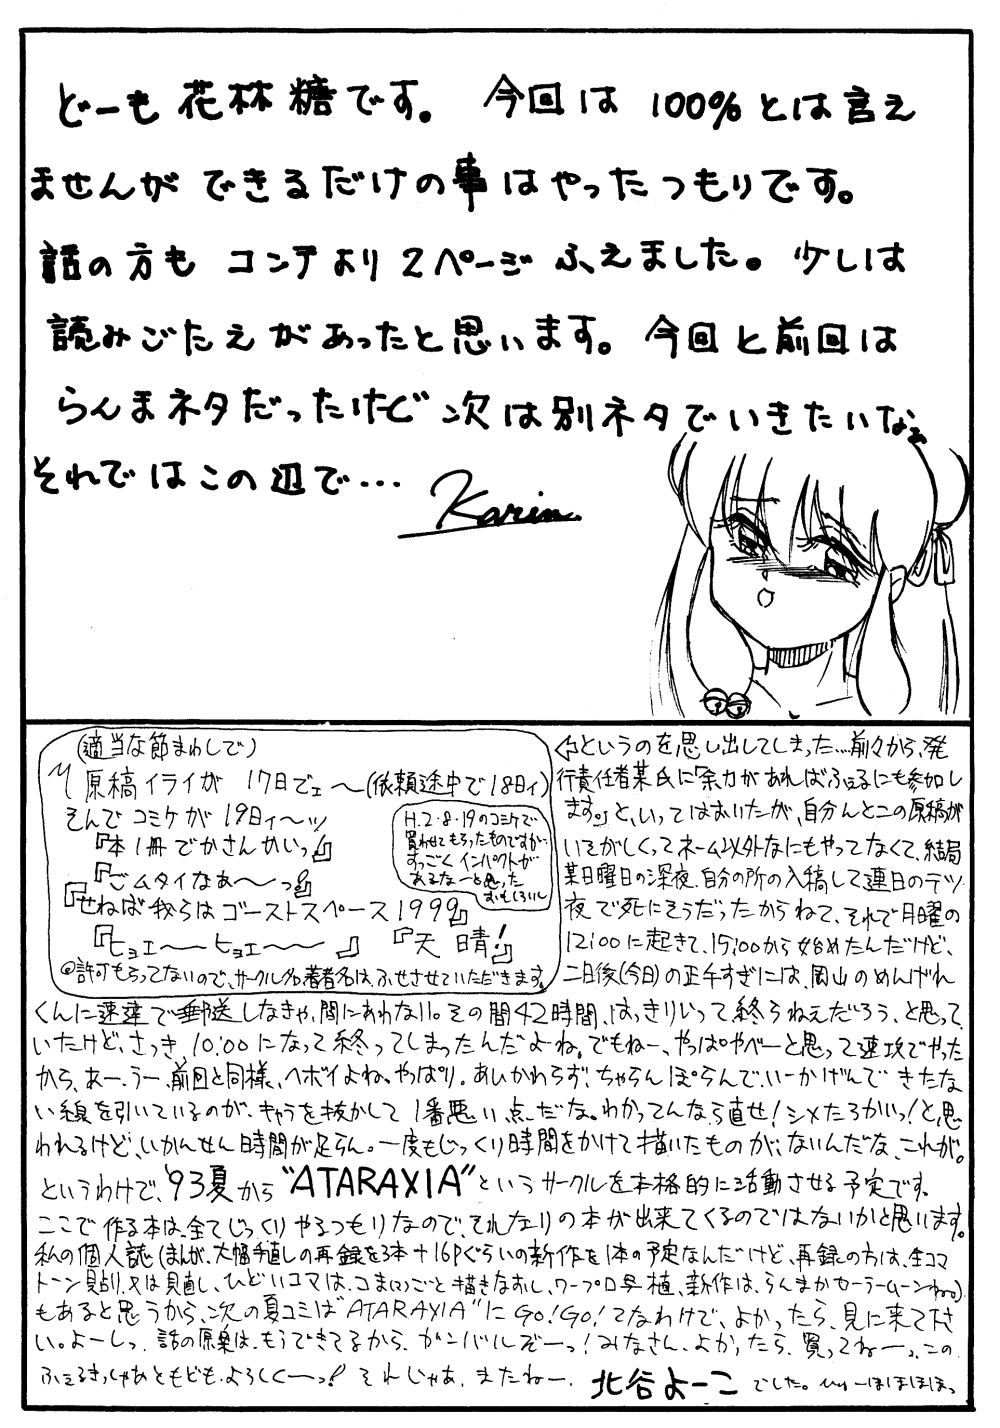 どーも 花林糖です。 今回は 100%とは言え
ませんが できるだけの事はやったつもりです。
話の方も コンテより2ページふえました。少しは
読みごたえがあったと思います。今回と前回は
らんまネタだったけど 次は別ネタでいきたいなぁ
それではこの辺で…
Karin
(適当な節まわしで)
原稿イライが 17日でェ〜(依頼途中で18日ィ)
そんで コミケが 19日ィ〜ッ
『本1冊でかさんかいっ』
『ごムタイなあ〜っ!』
『せねば我らはゴーストスペース1999』
『ヒョエ〜〜 ヒョエ〜〜 』 『天晴!』
H.2・8・19のコミケで
買わせてもらったものですが…
すっごく インパクトが
あるなーと思った
おもしろいし
◎許可もらってないので、サークル名著者名は、ふせさせていただきます。
⇦というのを思い出してしまった…前々から、発
行責任者某氏に「余力があればふぇるにも参加し
ます。」と、いってはおいたが、自分んとこの原稿が
いそがしくってネーム以外なにもやってなくて、結局
某日曜日の深夜、自分の所の入稿して連日のテツ
夜で死にそうだったからねて、それで月曜の
12:00に起きて、15:00から始めたんだけど、
二日後(今日)の正午すぎには、岡山のめんげれ
くんに速達で郵送しなきゃ、間にあわない。その間42時間、はっきりいって終らねえだろう、と思って
いたけど、さっき、10:00になって終ってしまったんだよね。でもねー、やっぱやべーと思って速攻でやった
から、あー、うー、前回と同様、ヘボイよね。やっぱり。あいかわらず、ちゃらんぽらんで、いーかげんで きたな
い線を引いているのが、キャラを抜かして 1番悪い点だな。わかってんなら直せ!シメたろかいっ!と、思
われるけど、いかんせん時間が足らん。一度もじっくり時間をかけて描いたものが、ないんだな、これが。
というわけで、'93夏から "ATARAXIA"というサークルを本格的に活動させる予定です。
ここで作る本は、全てじっくりやるつもりなので、それなりの本が出来てくるのではないかと思います。
私の個人誌(まんが、大幅手直しの再録を3本+16Pぐらいの新作を1本の予定なんだけど、再録の方は、全コマ
トーン貼り、又は見直し、ひどいコマは、コマごと描きなおし、ワープロ写植、新作は、らんまかセーラームーンねっ)
もあると思うから、次の夏コミは"ATARAXIA"にGO!GO!てなわけで、よかったら、見に来て下さ
い。よーしっ、話の原案は、もうできてるから、ガンバルぞーっ!みなさん、よかったら、買ってねーっ、この
ふぇるきっしゃあともども、よろしくーっ! それじゃあ、またねー、 北谷よーこ でした。 ほほほほっ